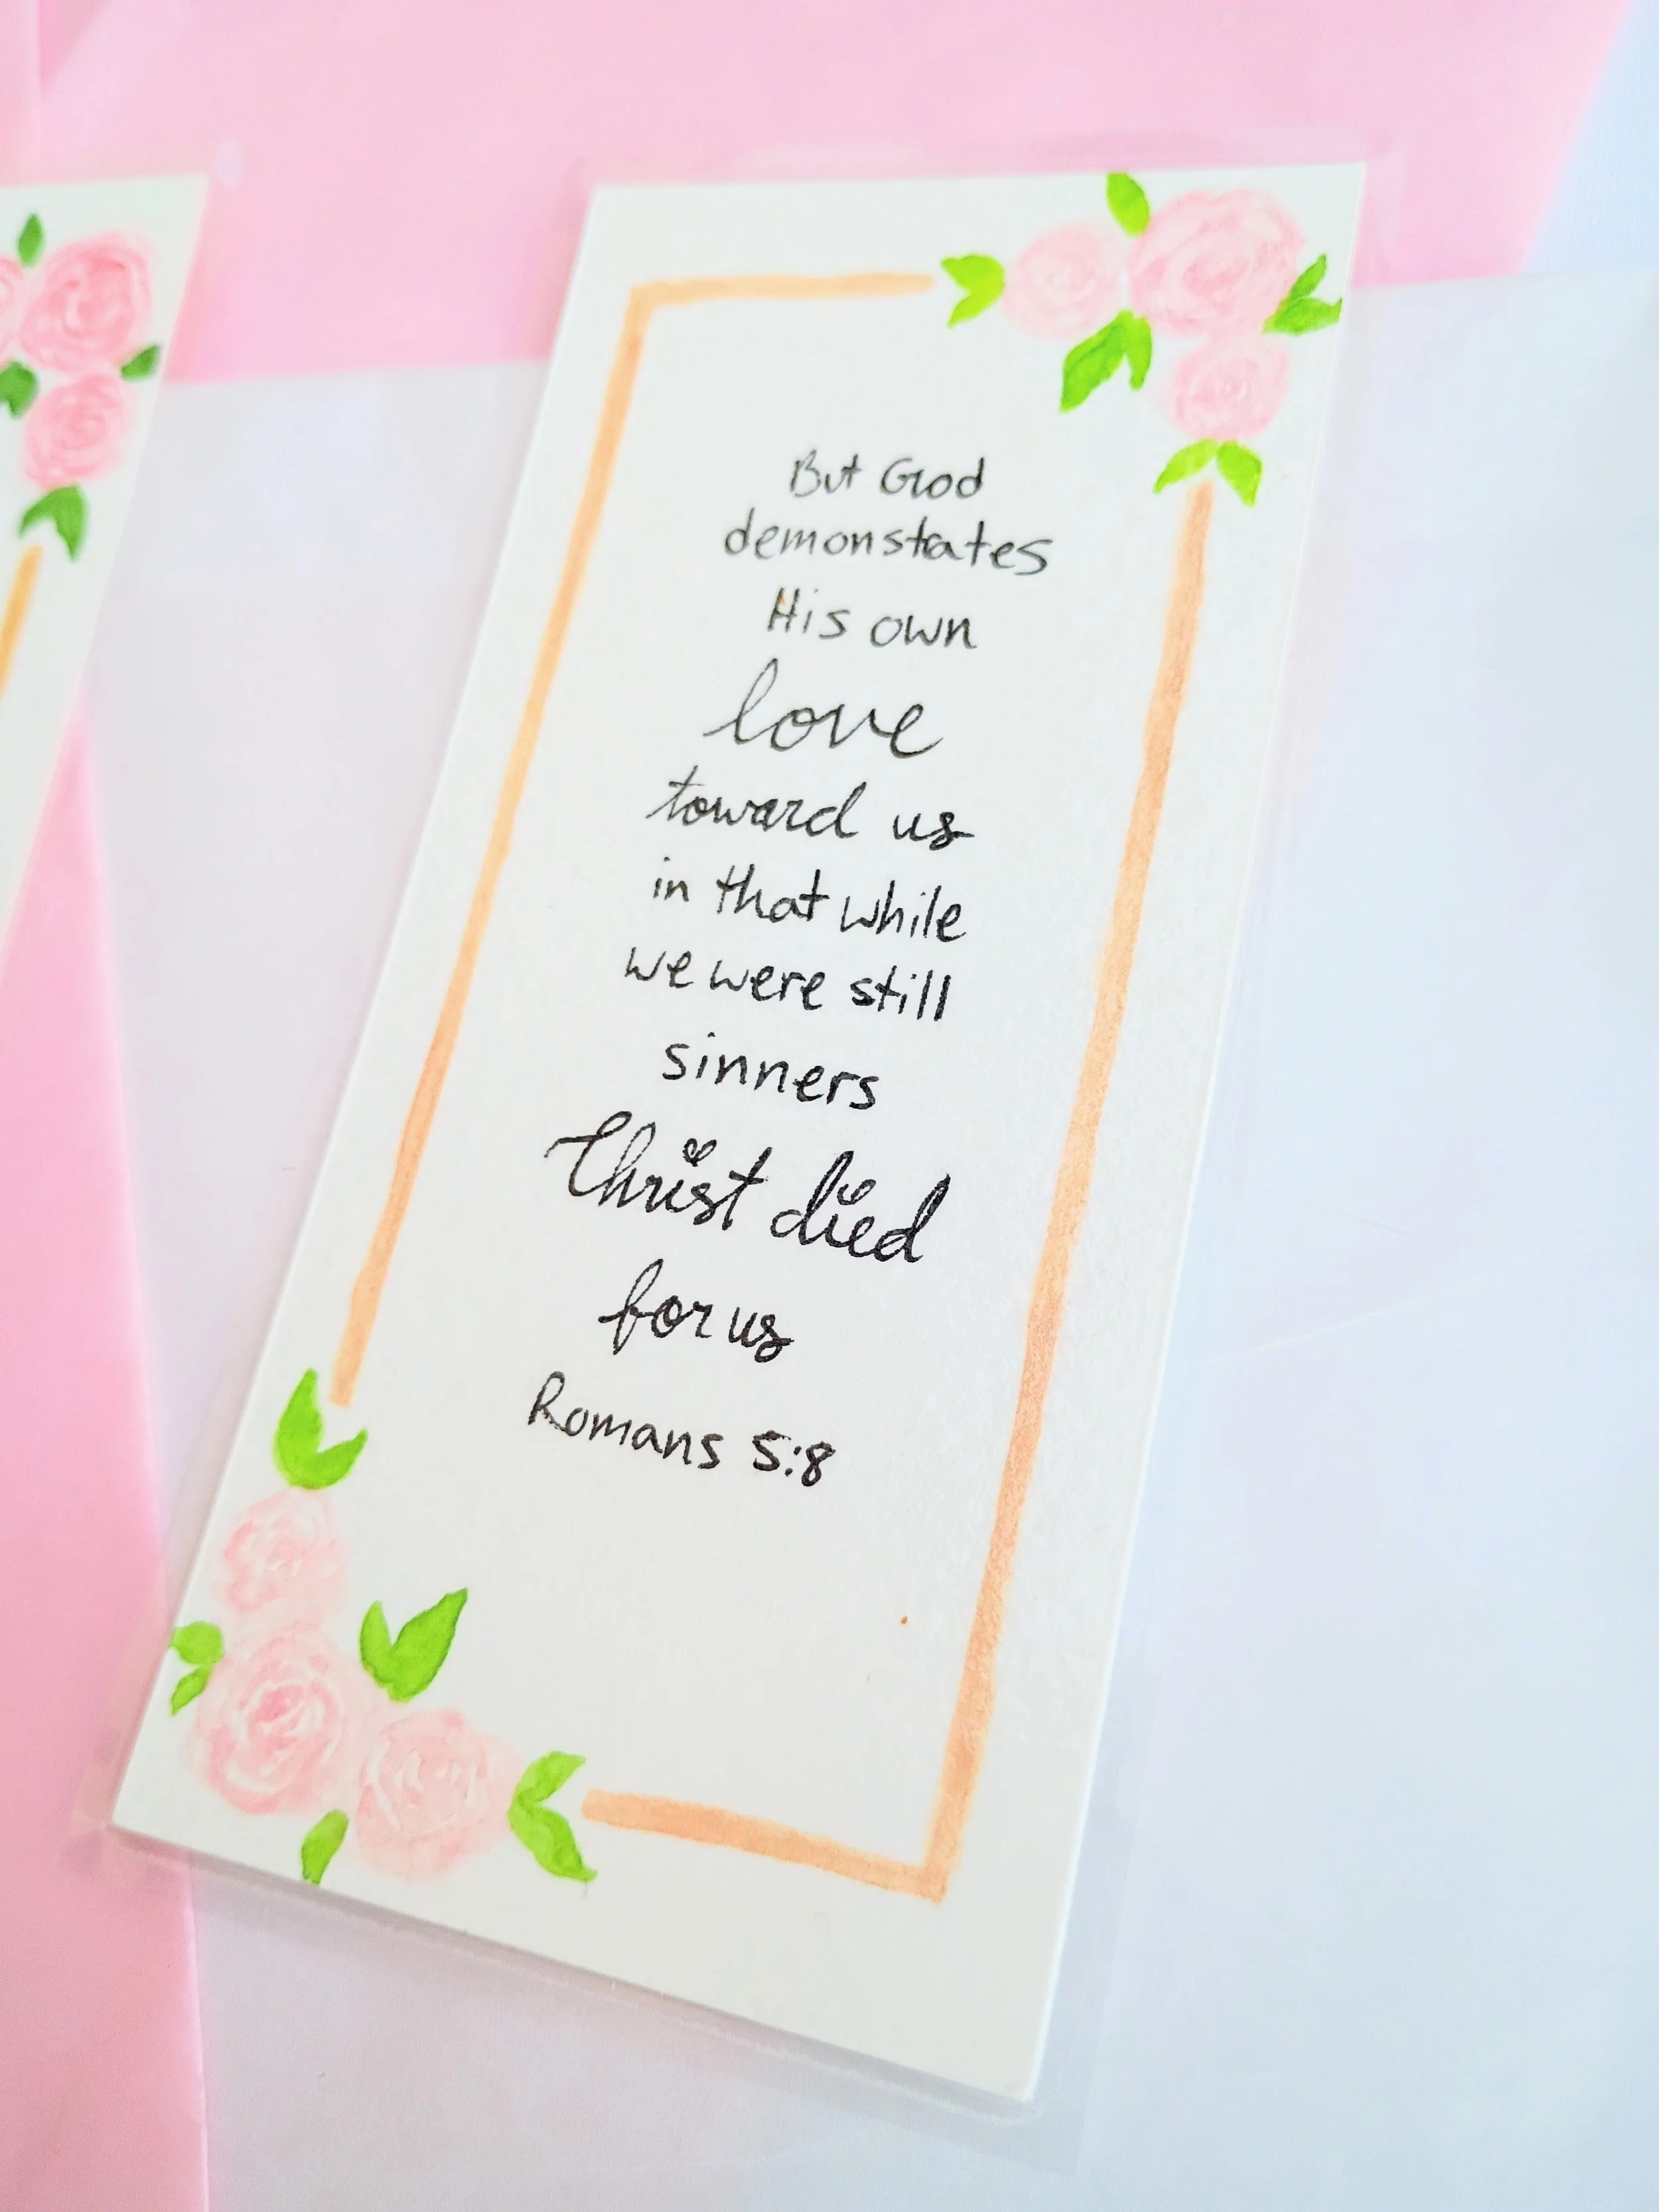 But God
demonstates
His own
love
toward us
in that while
we were still
sinners
Christ died
for us
Romans 5:8